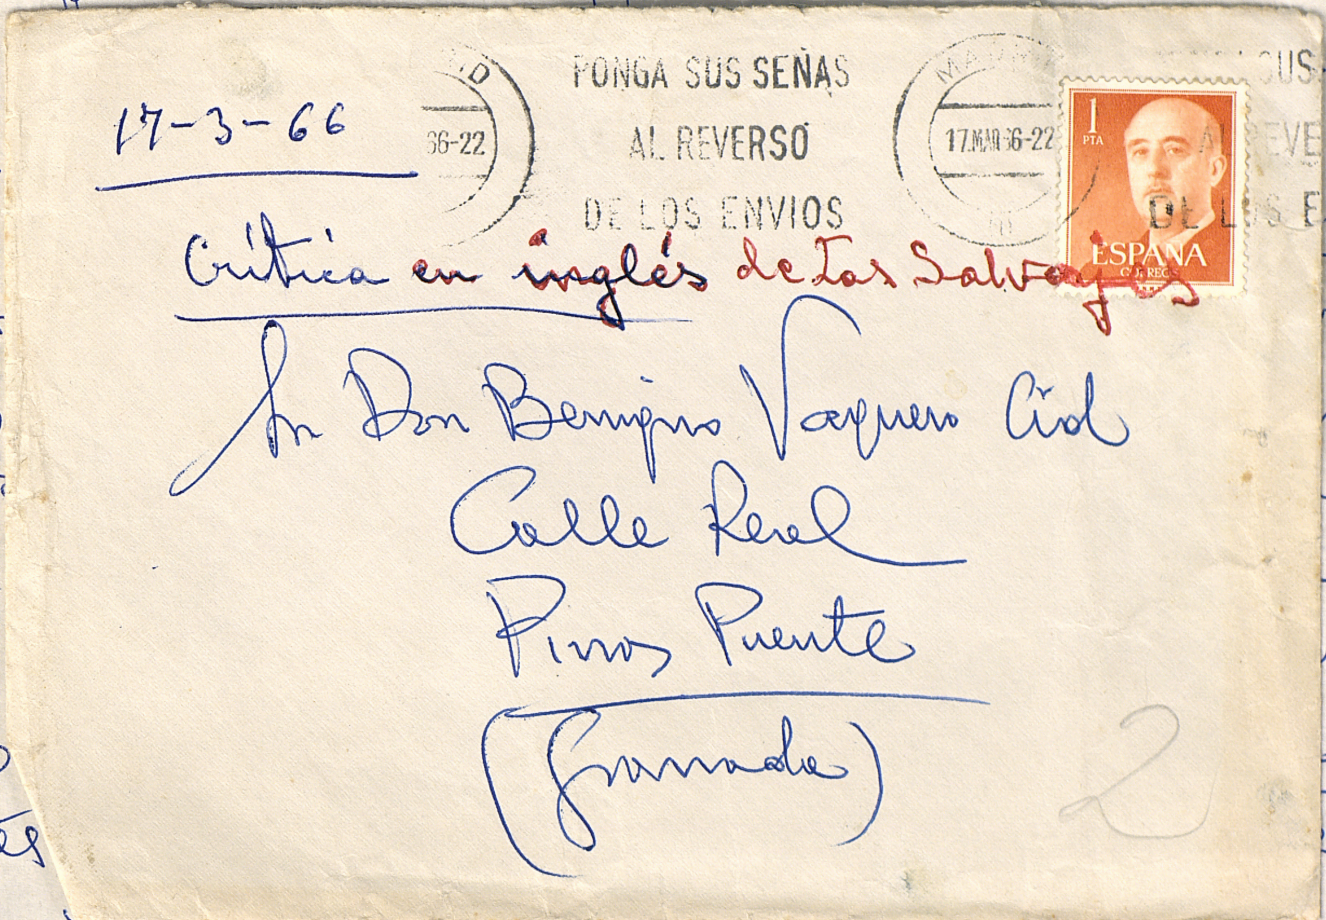 PONGA SUS SEÑAS
AL REVERSO
DE LOS ENVIOS
17-3-66
66-22
17.MAR 66-22
1
PTA
ESPAÑA
CORREOS
Crítica en inglés de Las Salvajes
Sr Don Benigno Vaquero Cid
Calle Real
Pinos Puente
(Granada)
2